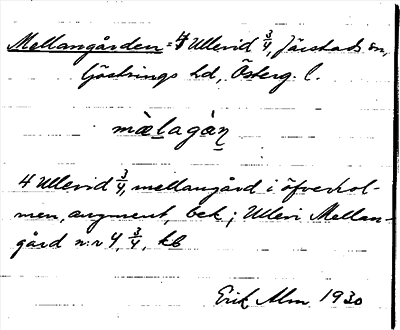 Mellangården = 4 Ullevid 3/4, Järstads sn,
Göstrings hd, Österg. l.
mälagàn̲
4 Ullevid 3/4, mellangård i öfverhol-
men, augment, bek; Ullevi Mellan-
gård n:r 4, 3/4, kb
Erik Alm 1930